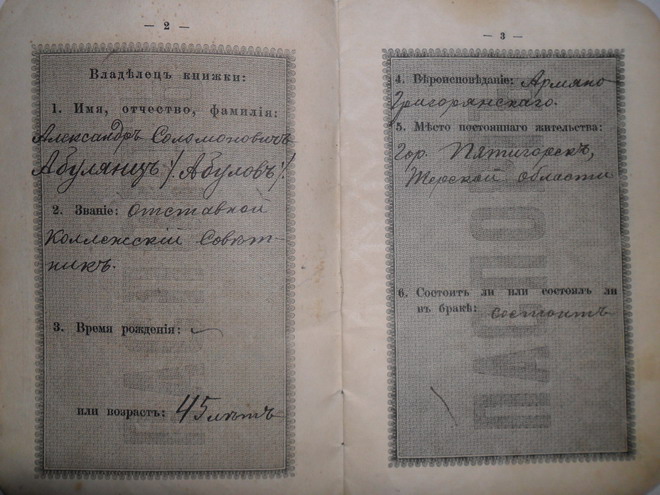 — 2 —
Владѣлецъ книжки:
1. Имя, отчество, фамилія:
Александръ Соломоновичъ
Абулянцъ /Абуловъ/.
2. Званіе: Отставной
Коллежскій Совѣт-
никъ.
3. Время рожденія: —
или возрастъ: 45 лѣтъ
— 3 —
4. Вѣроисповѣданіе: Армяно
Григорянскаго.
5. Мѣсто постояннаго жительства:
Гор. Пятигорскъ,
Терской Области
6. Состоитъ ли или состоялъ ли
въ бракѣ: состоитъ
ПАСПО